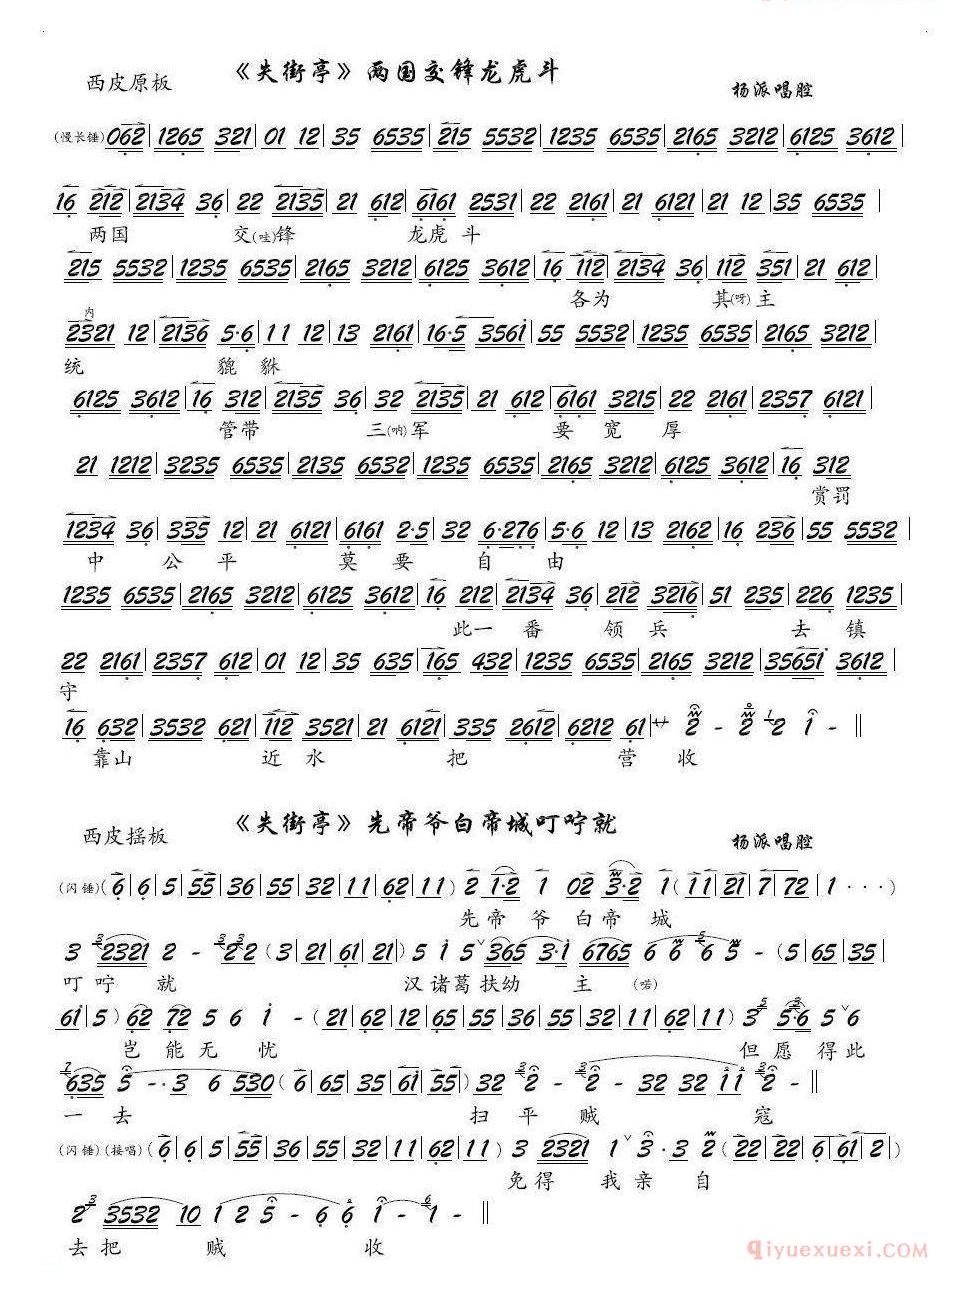 《失街亭》两国交锋龙虎斗
西皮原板
杨派唱腔
(慢长锤) 062 | 1265 321 | 01 12 | 35 6535 | 215 5532 | 1235 6535 | 2165 3212 | 6125 3612 |
16 212 | 2134 36 | 22 2135 | 21 612 | 6161 2531 | 22 2161 | 21 6121 | 21 12 | 35 6535 |
两国 交(哇)锋 龙虎 斗
215 5532 | 1235 6535 | 2165 3212 | 6125 3612 | 16 112 | 2134 36 | 112 351 | 21 612 |
各为 其(呀)主
内
2321 12 | 2136 5·6 | 11 12 | 13 2161 | 16·5 3561 | 55 5532 | 1235 6535 | 2165 3212 |
统 貔 貅
6125 3612 | 16 312 | 2135 36 | 32 2135 | 21 612 | 6161 3215 | 22 2161 | 2357 6121 |
管带 三(呐)军 要 宽 厚
21 1212 | 3235 6535 | 2135 6532 | 1235 6535 | 2165 3212 | 6125 3612 | 16 312
赏罚
1234 36 | 335 12 | 21 6121 | 6161 2·5 | 32 6·276 | 5·6 12 | 13 2162 | 16 236 | 55 5532 |
中 公 平 莫 要 自 由
1235 6535 | 2165 3212 | 6125 3612 | 16 212 | 2134 36 | 212 3216 | 51 235 | 226 1235 |
此一 番 领 兵 去 镇
22 2161 | 2357 612 | 01 12 | 35 635 | 165 432 | 1235 6535 | 2165 3212 | 35651 3612 |
守
16 632 | 3532 621 | 112 3521 | 21 6121 | 335 2612 | 6212 61 | 2 - 2 2 1 - ‖
靠山 近 水 把 营 收
《失街亭》先帝爷白帝城叮咛就
西皮摇板
杨派唱腔
(闪锤) (6 | 6 | 5 | 55 | 36 | 55 | 32 | 11 | 62 | 11 ) 2 1·2 1 02 3·2 1 ( 11 | 21 | 7 | 72 | 1 ···)
先 帝 爷 白 帝 城
3 2321 2 - 22 (3 | 21 | 61 | 21) 5 1 5 365 3·1 6765 6 6 6 5 - (5 | 65 | 35 |
叮 咛 就 汉 诸 葛 扶 幼 主 (喏)
61 | 5 ) 62 72 5 6 1 - (21 | 62 | 12 | 65 | 55 | 36 | 55 | 32 | 11 | 62 | 11 ) 3 5·6 5 6
岂 能 无 忧 但 愿 得 此
635 5 - · 3 6 530 (6 | 65 | 35 | 61 | 55 ) 32 2 - 2 - 32 32 11 2 - ‖
一 去 扫 平 贼 寇
(闪锤)(接唱) (6 | 6 | 5 | 55 | 36 | 55 | 32 | 11 | 62 | 11 ) 3 2321 1 3 · 3 2 (22 | 22 | 6 | 61 | 2 | )
免 得 我 亲 自
2 3532 10 1 2 5 - 6 6 1 - 1 - ‖
去 把 贼 收
qiyuexuexi.COM